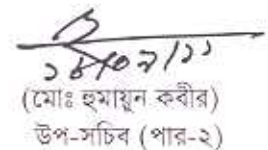 (মোঃ হুমায়ুন কবীর)
উপ-সচিব (পার-২)